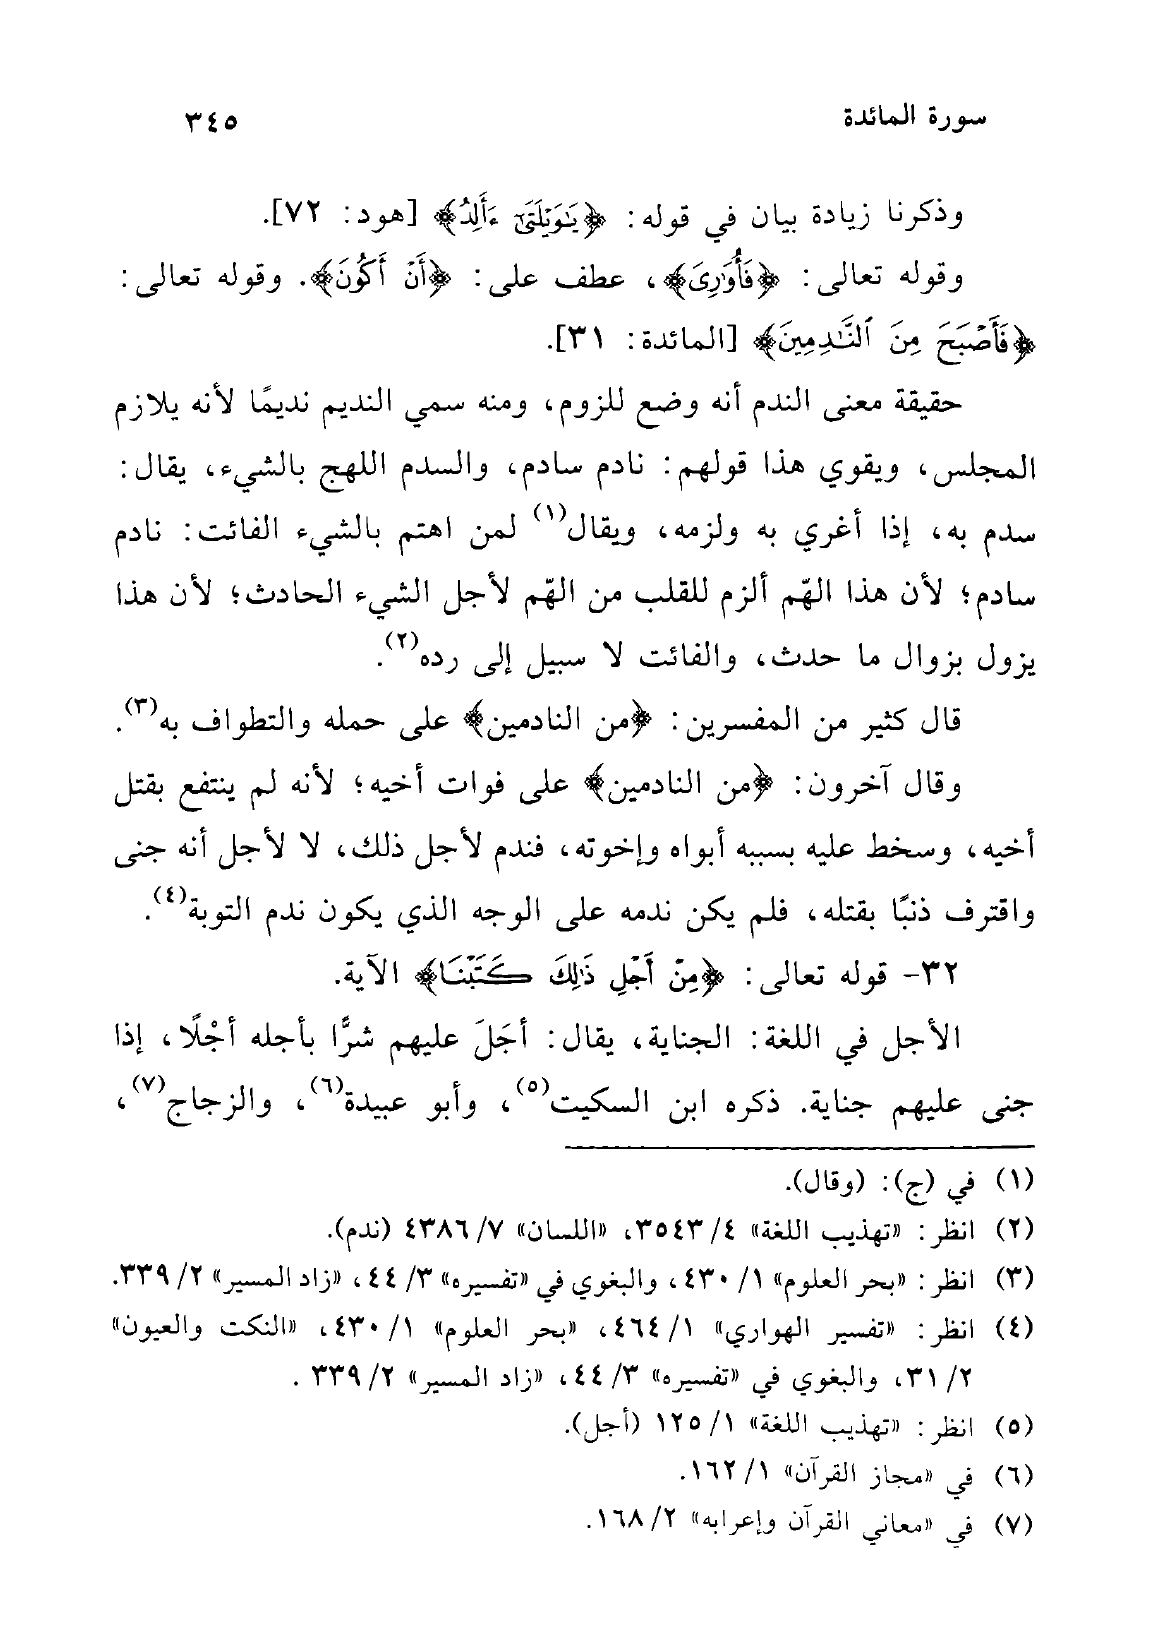 سورة المائدة ٣٤٥
وذكرنا زيادة بيان في قوله: ﴿يَـٰوَيْلَتَىٰٓ ءَأَلِدُ﴾ [هود: ٧٢].
وقوله تعالى: ﴿فَأُوَٰرِىَ﴾، عطف على: ﴿أَنْ أَكُونَ﴾. وقوله تعالى:
﴿فَأَصْبَحَ مِنَ ٱلنَّـٰدِمِينَ﴾ [المائدة: ٣١].
حقيقة معنى الندم أنه وضع للزوم، ومنه سمي النديم نديمًا لأنه يلازم
المجلس، ويقوي هذا قولهم: نادم سادم، والسدم اللهج بالشيء، يقال:
سدم به، إذا أغري به ولزمه، ويقال(١) لمن اهتم بالشيء الفائت: نادم
سادم؛ لأن هذا الهّم ألزم للقلب من الهّم لأجل الشيء الحادث؛ لأن هذا
يزول بزوال ما حدث، والفائت لا سبيل إلى رده(٢).
قال كثير من المفسرين: ﴿من النادمين﴾ على حمله والتطواف به(٣).
وقال آخرون: ﴿من النادمين﴾ على فوات أخيه؛ لأنه لم ينتفع بقتل
أخيه، وسخط عليه بسببه أبواه وإخوته، فندم لأجل ذلك، لا لأجل أنه جنى
واقترف ذنبًا بقتله، فلم يكن ندمه على الوجه الذي يكون ندم التوبة(٤).
٣٢- قوله تعالى: ﴿مِنْ أَجْلِ ذَٰلِكَ كَتَبْنَا﴾ الآية.
الأجل في اللغة: الجناية، يقال: أجَلَ عليهم شرًّا بأجله أجْلًا، إذا
جنى عليهم جناية. ذكره ابن السكيت(٥)، وأبو عبيدة(٦)، والزجاج(٧)،
(١) في (ج): (وقال).
(٢) انظر: «تهذيب اللغة» ٤/ ٣٥٤٣، «اللسان» ٧/ ٤٣٨٦ (ندم).
(٣) انظر: «بحر العلوم» ١/ ٤٣٠، والبغوي في «تفسيره» ٣/ ٤٤، «زاد المسير» ٢/ ٣٣٩.
(٤) انظر: «تفسير الهواري» ١/ ٤٦٤، «بحر العلوم» ١/ ٤٣٠، «النكت والعيون»
٢/ ٣١، والبغوي في «تفسيره» ٣/ ٤٤، «زاد المسير» ٢/ ٣٣٩ .
(٥) انظر: «تهذيب اللغة» ١/ ١٢٥ (أجل).
(٦) في «مجاز القرآن» ١/ ١٦٢.
(٧) في «معاني القرآن وإعرابه» ٢/ ١٦٨.